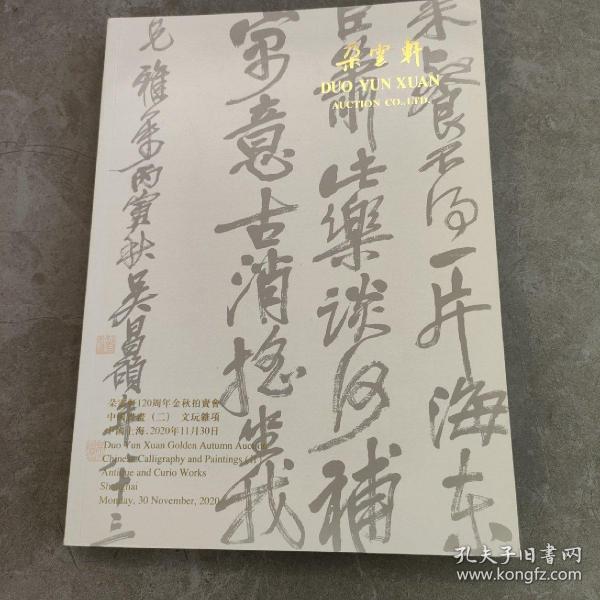 朵雲軒
DUO YUN XUAN
AUCTION CO.,LTD.
海东
一片
解此樂谈何補
寓意古消搖坐我
兄雅属丙寅秋吴昌碩年八十三
朵雲軒120周年金秋拍賣會
中國書畫（二） 文玩雜項
中國上海，2020年11月30日
Duo Yun Xuan Golden Autumn Auction
Chinese Calligraphy and Paintings (II)
Antique and Curio Works
Shanghai
Monday, 30 November, 2020
孔夫子旧书网
www.kongfz.com